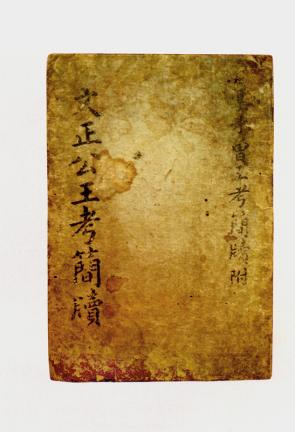 考簡牘附
文正公王考簡牘